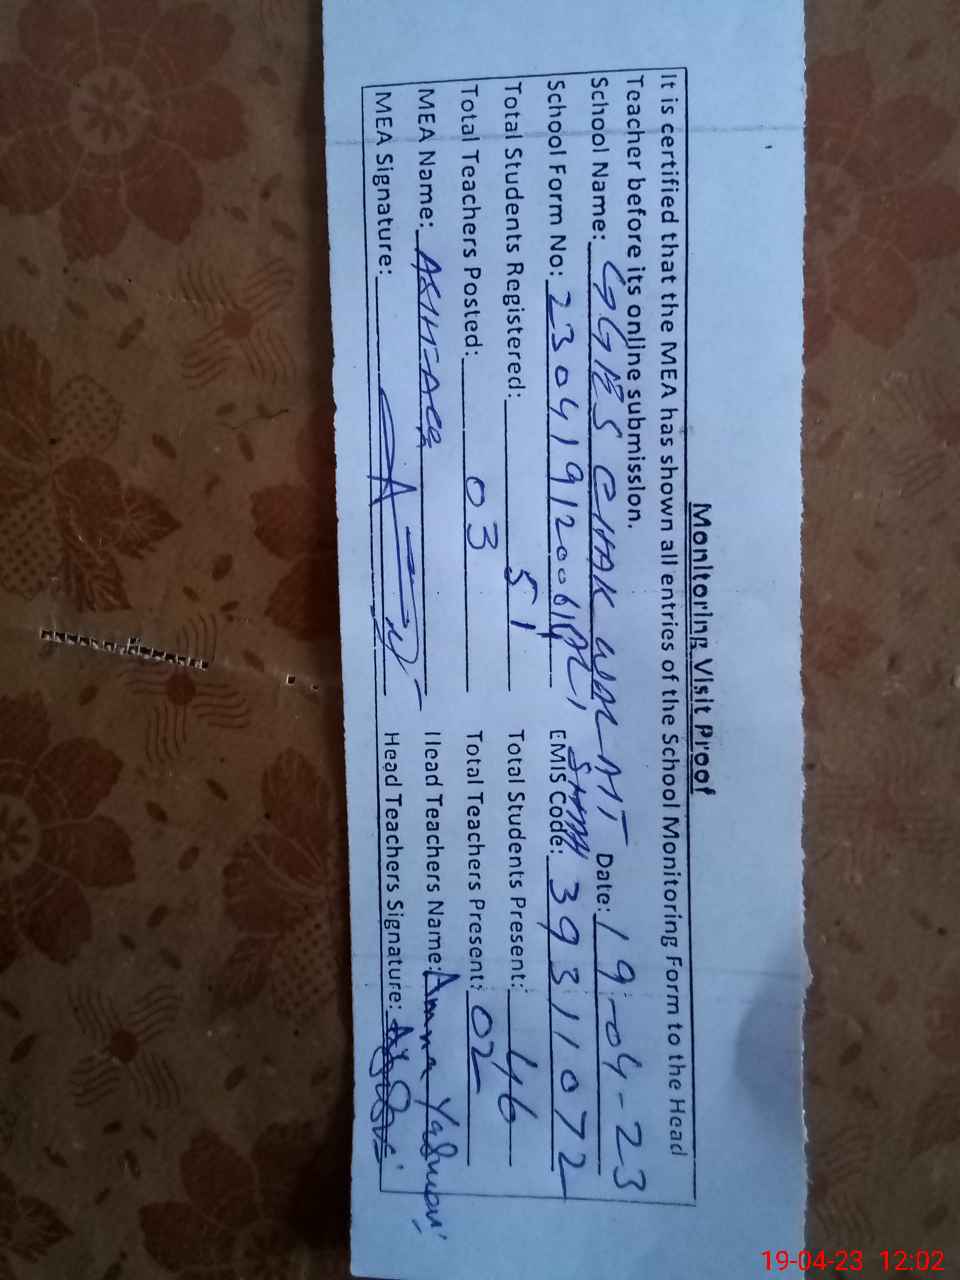 Monitoring Visit Proof
It is certified that the MEA has shown all entries of the School Monitoring Form to the Head
Teacher before its online submission.
School Name: GGES CHAK Date: 19-04-23
School Form No: EMIS Code: 39311072
Total Students Registered: 51 Total Students Present: 46
Total Teachers Posted: 03 Total Teachers Present: 02
MEA Name: Head Teachers Name: Amna Yasmon
MEA Signature: Head Teachers Signature:
19-04-23 12:02